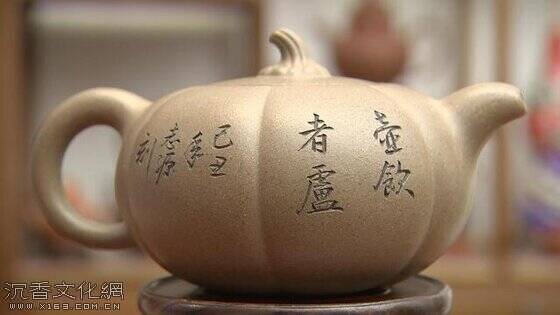 壺飲
者盧
己丑
季
志源
刻
沉香文化網
www.x163.com.cn